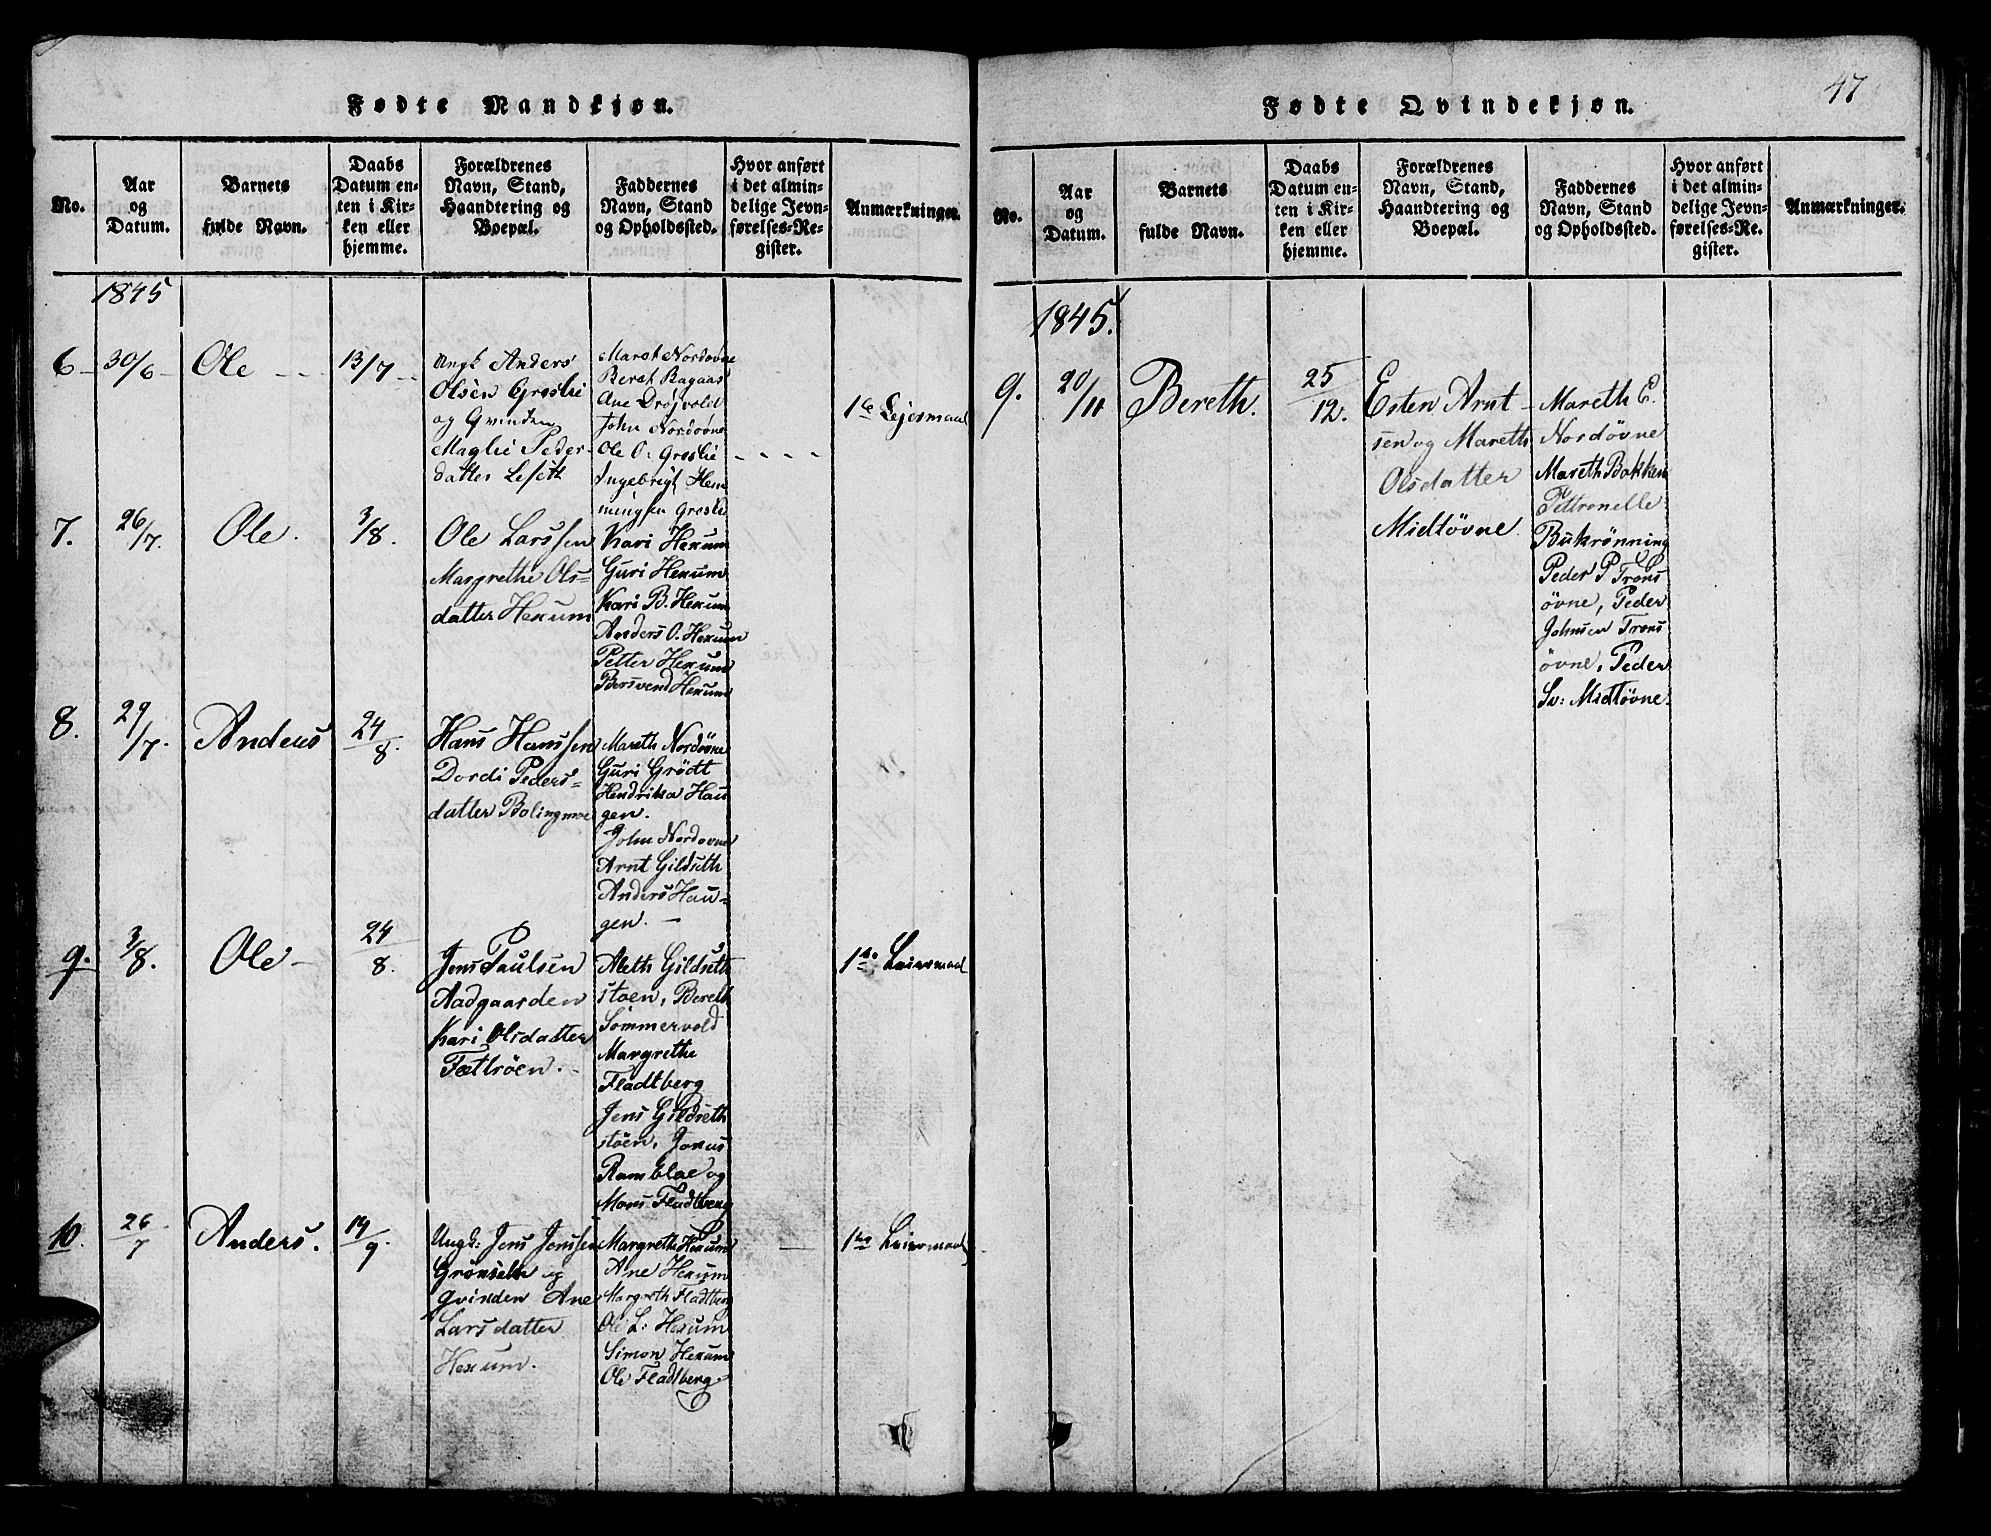 Fødte Mandkjøn.
No.
Aar
og
Datum.
Barnets
fulde Navn.
Daabs
Datum en-
ten i Kir-
ken eller
hjemme.
Forældrenes
Navn, Stand,
Haandtering og
Boepæl.
Faddernes
Navn, Stand
og Opholdssted.
Hvor anført
i det almin-
delige Jevn-
førelses-Re-
gister.
Anmærkninger.
1845
6
30/6
Ole
13/7
Ungk Anders
Olsen Groslie
og Qvinden
Maglie Peder-
datter
Maret Nordøvne
Beret Bagaas
Ane Drøjvold
John Nordøvne
Ole O. Groslie
Ingebrigt Hem
mingsen Groslie
1te Lejermaal
7.
26/7.
Ole.
3/8.
Ole Larssen
Margrethe Ols-
datter Hexum
Kari Hexum
Guri Hexum
Kari B. Hexum
Anders O. Hexum
Petter Hexum
Bersvend Hexum
8.
29/7.
Anders
24/8.
Hans Hanssen
Dordi Peders-
datter Bolingmoe
Mareth Nordøvne
Guri Grödt
Hendrika Hau
gen.
John Nordøvne
Arnt Gildseth
Anders Hau-
gen. —
9.
3/8.
Ole —
24/8.
Jens Paulsen
Aadgaarden
Kari Olsdatter
Fættröen.
Aleth Gildseth
støen, Bereth
Sommervold
Margrethe
Fladtberg
Jens Gildseth
støen, Jonus
Ramblae og
Mons Fladtberg
1te Leiermaal
10.
26/7
Anders.
14/9.
Ungk: Jens Jenssen
Grönseth og
Qvinden Ane
Larsdatter
Hexum.
Margreth Hexum
Ane Hexum
Margreth Fladtberg
Ole L: Hexum
Simon Hexum
Ole Fladtberg
1te Leiermaal
47
Fødte Qvindekjøn.
No.
Aar
og
Datum.
Barnets
fulde Navn.
Daabs
Datum en-
ten i Kir-
ken eller
hjemme.
Forældrenes
Navn, Stand,
Haandtering og
Boepæl.
Faddernes
Navn, Stand
og Opholdssted.
Hvor anført
i det almin-
delige Jevn-
førelses-Re-
gister.
Anmærkninger.
1845.
9.
20/11
Bereth.
25/12.
Esten Arnt-
sen og Mareth
Olsdatter
Midtøvne
Mareth E.
Nordøvne
Mareth Bakken
Pettronelle
Bukrönning
Peder P Trons
øvne, Peder
Johnsen Trons
øvne, Peder
Sv: Midtøvne.